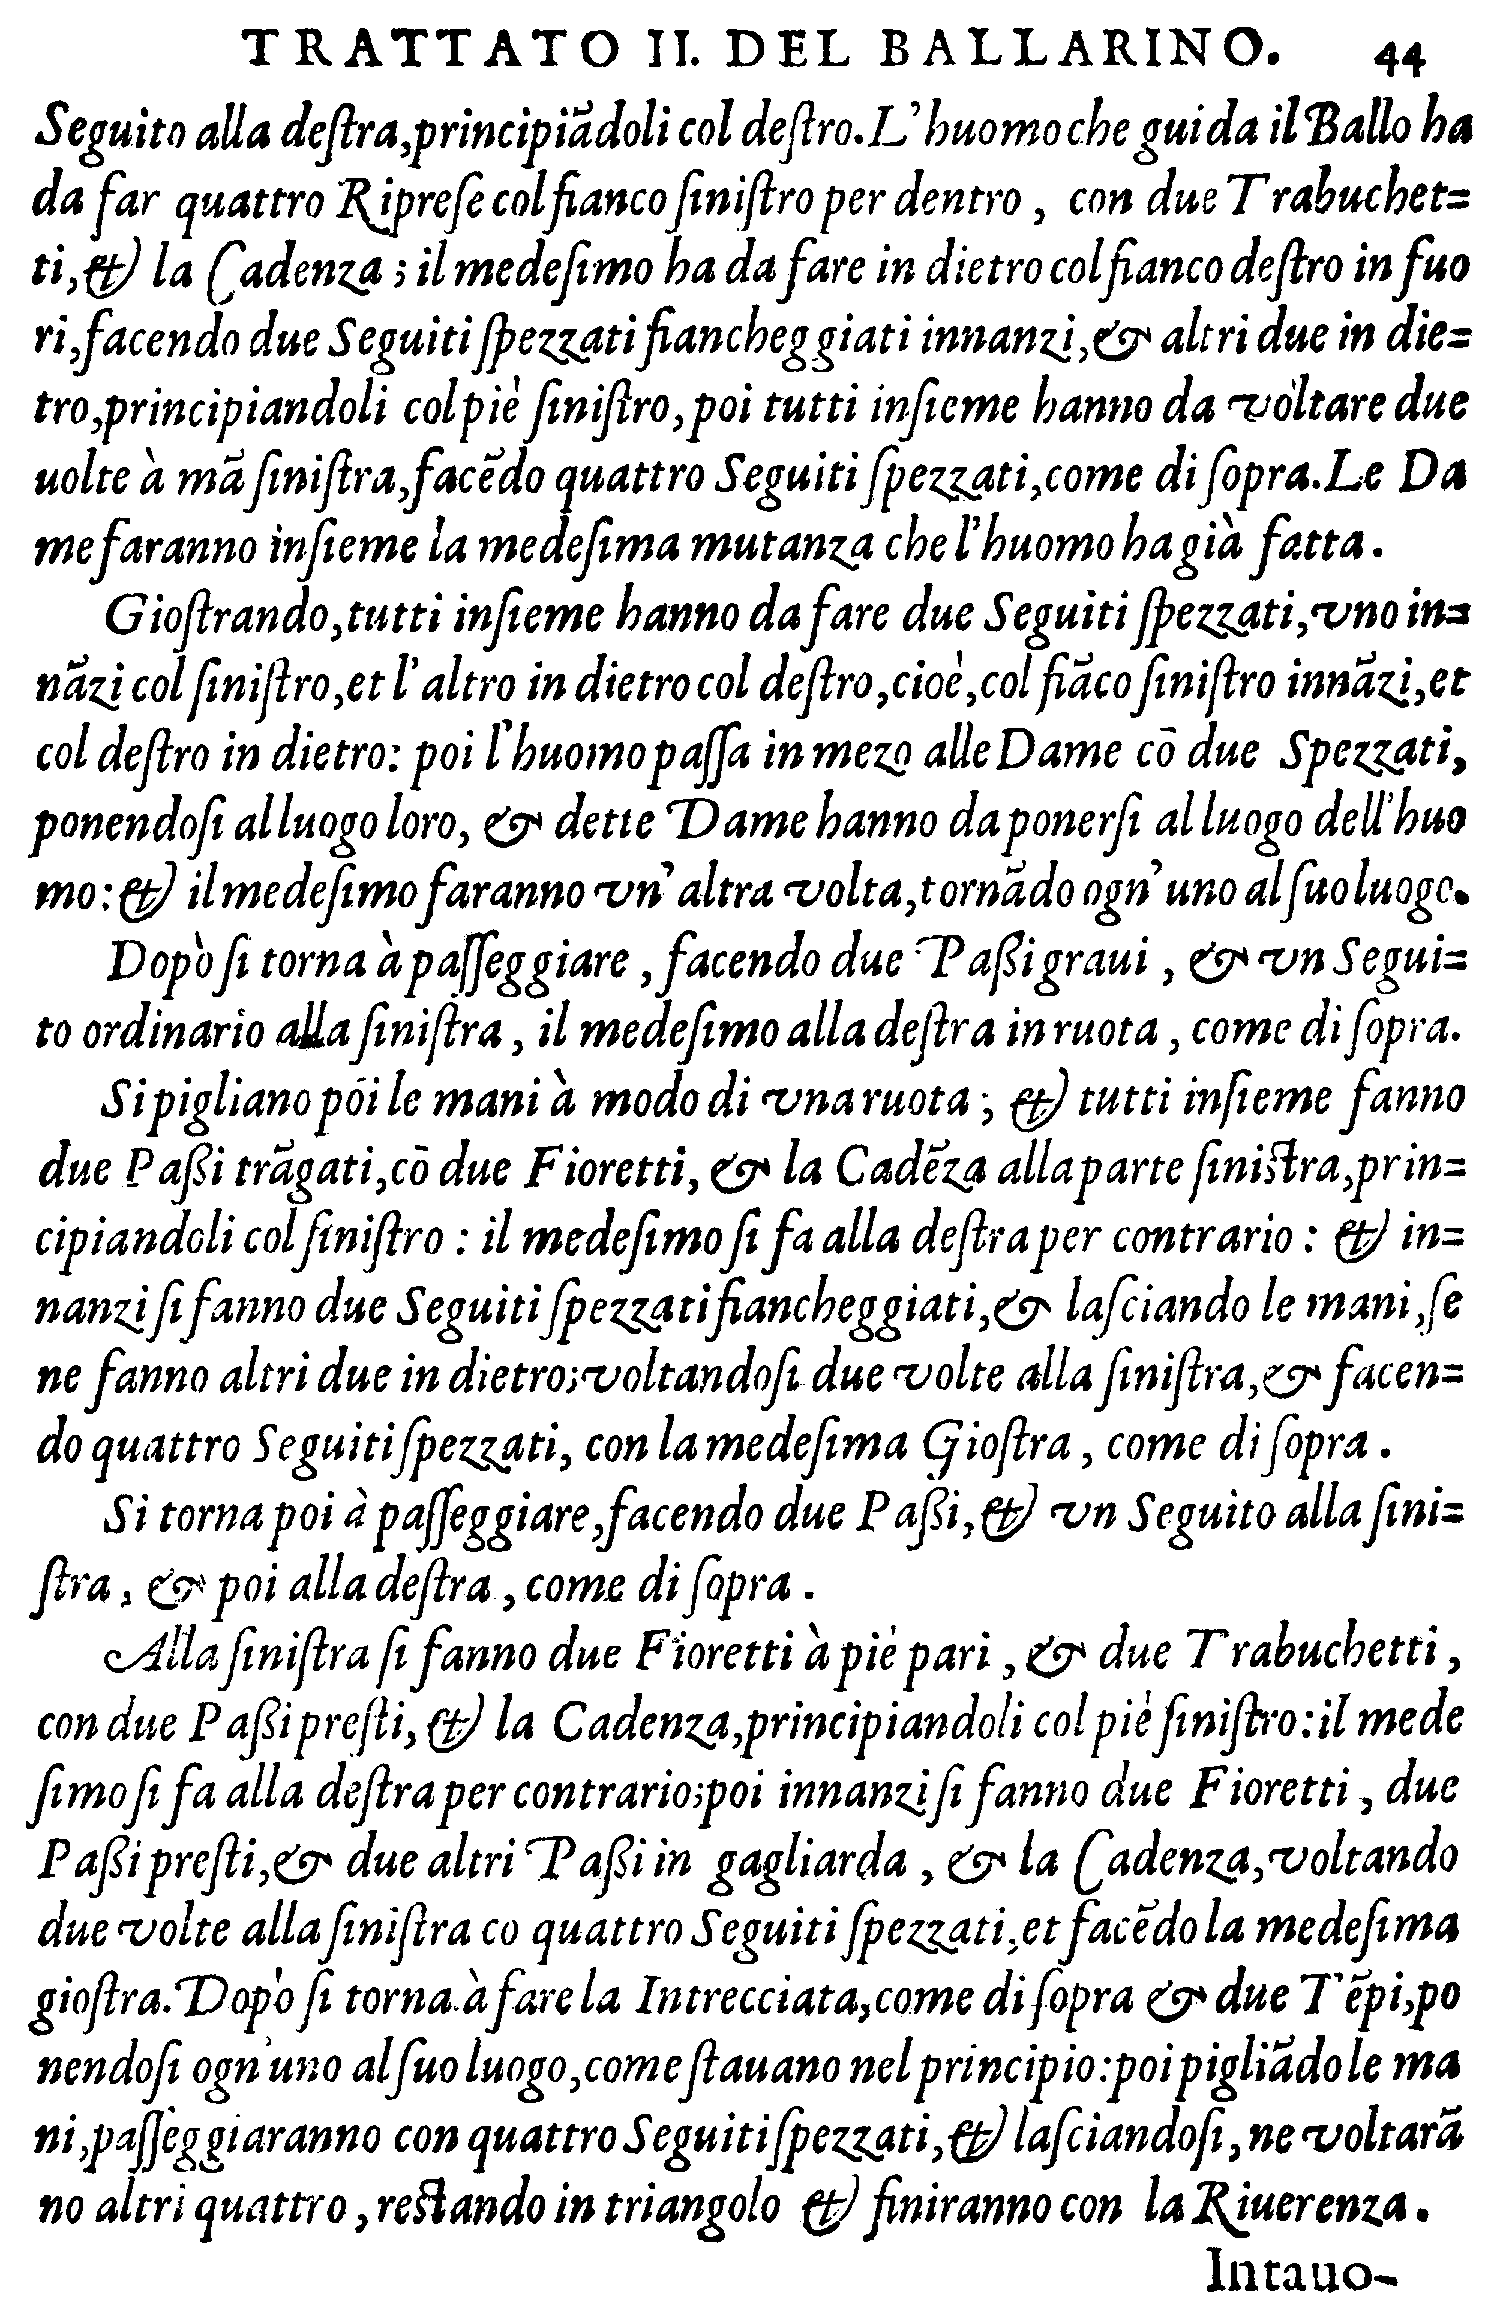 TRATTATO II. DEL BALLARINO. 44
Seguito alla deſtra, principiãdoli col deſtro. L'huomo che guida il Ballo ha
da far quattro Ripreſe col fianco ſiniſtro per dentro, con due Trabuchet=
ti, & la Cadenza; il medeſimo ha da fare in dietro col fianco deſtro in fuo
ri, facendo due Seguiti ſpezzati fiancheggiati innanzi, & altri due in die=
tro, principiandoli col piè ſiniſtro, poi tutti inſieme hanno da voltare due
uolte à mã ſiniſtra, facẽdo quattro Seguiti ſpezzati, come di ſopra. Le Da
me faranno inſieme la medeſima mutanza che l'huomo ha già fatta.
Gioſtrando, tutti inſieme hanno da fare due Seguiti ſpezzati, vno in=
nãzi col ſiniſtro, et l'altro in dietro col deſtro, cioè, col fiãco ſiniſtro innãzi, et
col deſtro in dietro: poi l'huomo paſſa in mezo alle Dame cõ due Spezzati,
ponendoſi al luogo loro, & dette Dame hanno da ponerſi al luogo dell'huo
mo: & il medeſimo faranno vn'altra volta, tornãdo ogn'uno al ſuo luogo.
Dopò ſi torna à paſſeggiare, facendo due Paßi graui, & vn Segui=
to ordinario alla ſiniſtra, il medeſimo alla deſtra in ruota, come di ſopra.
Si pigliano pòi le mani à modo di vna ruota; & tutti inſieme fanno
due Paßi trãgati, cõ due Fioretti, & la Cadẽza alla parte ſiniſtra, prin=
cipiandoli col ſiniſtro: il medeſimo ſi fa alla deſtra per contrario: & in=
nanzi ſi fanno due Seguiti ſpezzati fiancheggiati, & laſciando le mani, ſe
ne fanno altri due in dietro; voltandoſi due volte alla ſiniſtra, & facen=
do quattro Seguiti ſpezzati, con la medeſima Gioſtra, come di ſopra.
Si torna poi à paſſeggiare, facendo due Paßi, & vn Seguito alla ſini=
ſtra, & poi alla deſtra, come di ſopra.
Alla ſiniſtra ſi fanno due Fioretti à piè pari, & due Trabuchetti,
con due Paßi preſti, & la Cadenza, principiandoli col piè ſiniſtro: il mede
ſimo ſi fa alla deſtra per contrario; poi innanzi ſi fanno due Fioretti, due
Paßi preſti, & due altri Paßi in gagliarda, & la Cadenza, voltando
due volte alla ſiniſtra co quattro Seguiti ſpezzati, et facẽdo la medeſima
gioſtra. Dopò ſi torna à fare la Intrecciata, come di ſopra & due Tẽpi, po
nendoſi ogn'uno al ſuo luogo, come ſtauano nel principio: poi pigliãdo le ma
ni, paſſeggiaranno con quattro Seguiti ſpezzati, & laſciandoſi, ne voltarã
no altri quattro, reſtando in triangolo & finiranno con la Riuerenza.
Intauo-